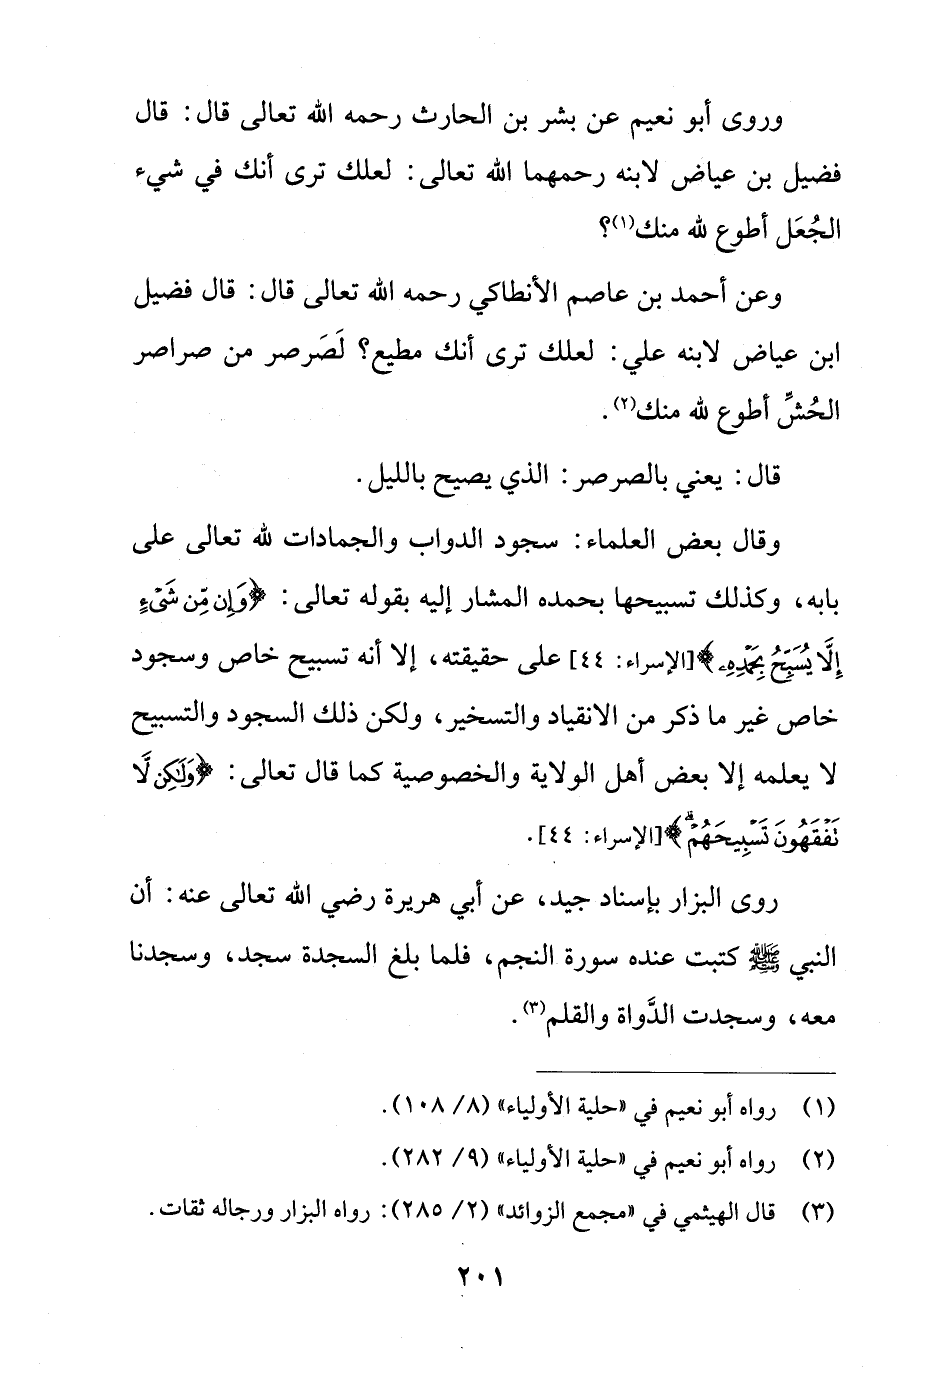 وروى أبو نعيم عن بشر بن الحارث رحمه الله تعالى قال: قال
فضيل بن عياض لابنه رحمهما الله تعالى: لعلك ترى أنك في شيء
الجُعَل أطوع لله منك(١)؟
وعن أحمد بن عاصم الأنطاكي رحمه الله تعالى قال: قال فضيل
ابن عياض لابنه علي: لعلك ترى أنك مطيع؟ لَصَرصر من صراصر
الحُشِّ أطوع لله منك(٢).
قال: يعني بالصرصر: الذي يصيح بالليل.
وقال بعض العلماء: سجود الدواب والجمادات لله تعالى على
بابه، وكذلك تسبيحها بحمده المشار إليه بقوله تعالى: ﴿وَإِن مِّن شَىْءٍ
إِلَّا يُسَبِّحُ بِحَمْدِهِۦ﴾[الإسراء: ٤٤] على حقيقته، إلا أنه تسبيح خاص وسجود
خاص غير ما ذكر من الانقياد والتسخير، ولكن ذلك السجود والتسبيح
لا يعلمه إلا بعض أهل الولاية والخصوصية كما قال تعالى: ﴿وَلَٰكِن لَّا
تَفْقَهُونَ تَسْبِيحَهُمْ ۗ﴾[الإسراء: ٤٤].
روى البزار بإسناد جيد، عن أبي هريرة رضي الله تعالى عنه: أن
النبي ﷺ كتبت عنده سورة النجم، فلما بلغ السجدة سجد، وسجدنا
معه، وسجدت الدَّواة والقلم(٣).
(١) رواه أبو نعيم في «حلية الأولياء» (٨/ ١٠٨).
(٢) رواه أبو نعيم في «حلية الأولياء» (٩/ ٢٨٢).
(٣) قال الهيثمي في «مجمع الزوائد» (٢/ ٢٨٥): رواه البزار ورجاله ثقات.
٢٠١